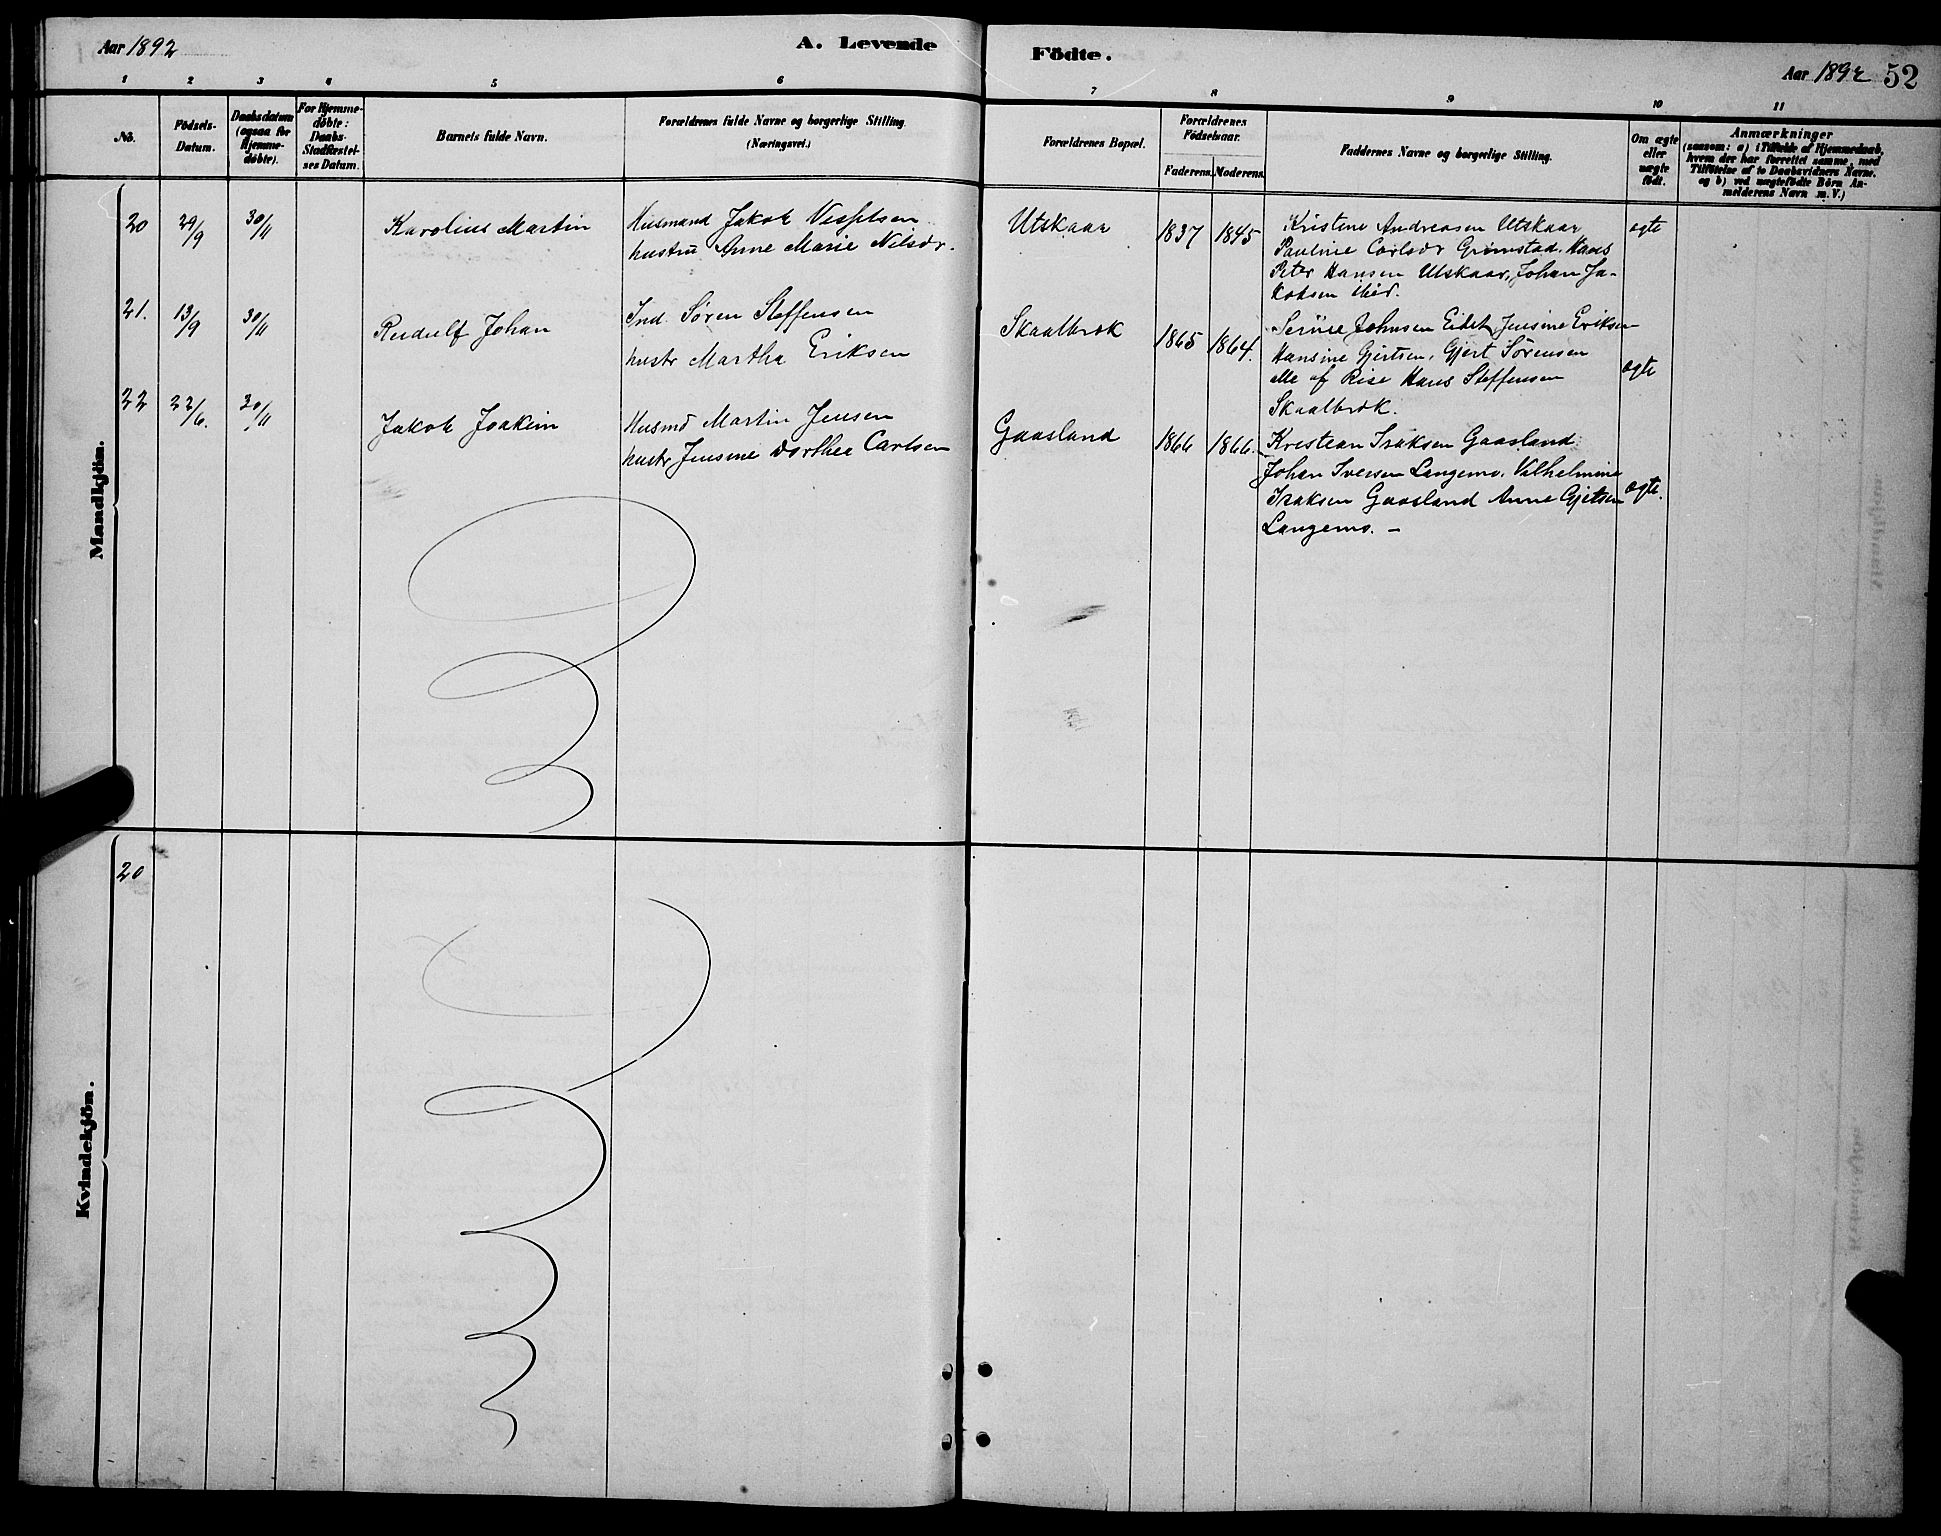 Aar 1892
A. Levende
Födte.
Aar 1892 52
1 2 3 4 5 6 7 8 9 10 11
No.
Födsels-
Datum.
Daabsdatum
(ogsaa for
Hjemme-
döbte).
For Hjemme-
döbte:
Daabs-
Stadfæstel-
ses Datum.
Barnets fulde Navn.
Forældrenes fulde Navne og borgerlige Stilling.
(Næringsvei.)
Forældrenes Bopæl.
Forældrenes
Födselsaar.
Faderens. Moderens.
Faddernes Navne og borgerlige Stilling.
Om ægte
eller
uægte
födt.
Anmærkninger
(saasom: a) i Tilfælde af Hjemmedaab,
hvem der har forrettet samme, med
Tilföielse af to Daabsvidners Navne.
og b) ved uægtefödte Börn An-
melderens Navn m. V.)
Mandkjön.
20 29/9 30/11 Karolius Martin
Husmand Jakob
hustru Anne Marie Nilsdr.
Utskaar 1837 1845
Kristine Andreasen Utskaar
Pauline Carlsdr Grimstad. Hans
Peter Hansen Utskaar, Johan Ja-
kobsen ibid.
ægte
21. 13/9 30/11 Rudulf Johan
Ind. Sören Steffensen
hustr Martha Eriksen
Skaalbrok 1865 1864.
Johnsen Eidet, Jensine Eriksen
Hansine Gjertsen, Gjert Sörensen
alle af Rise Hans Steffensen
Skaalbrok.
ægte
22 22/6. 30/11 Jakob Joakim
Husmd Martin Jensen
hustr Jensine Dorthea Carlsen
Gaasland 1866 1866.
Kristian Isaksen Gaasland
Johan Iversen Langemo, Vilhelmine
Isaksen Gaasland Anne Gjertsen
Langemo. –
ægte.
Kvindekjön.
20